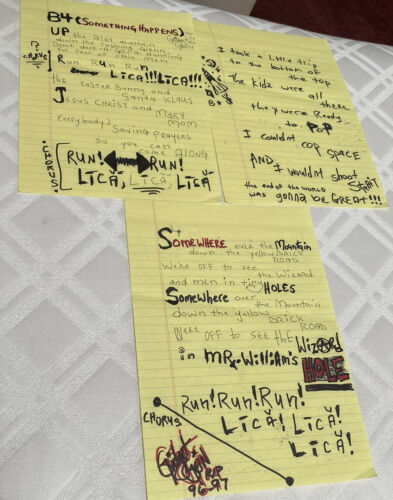 B4 (SOMETHING HAPPENS)
UP the Airy mountain
down the rushing glenn
Dont dare A go A hunting
for fear of little men
? CHORUS
Run Run Run
LĪCĂ!!! LĪCĂ!!!
the EASTER Bunny and
Santa KLAUS
JESUS CHRIST and MARY
MOM
EVERYbody's SAVING PRAYERS
so you CAN
COME ALONG
CHORUS.
RUN! RUN!
LĪCĂ, LĪCĂ, LĪCĂ
I took A little trip
to the bottom of
the top
The kidz were all
there
they were Ready
to PoP
I couldnt cop space
AND I wouldnt shoot
STRAIT
the end of the world
WAS goNNA be GREAT!!!
SOMEWHERE over the Mountain
down the yellow BRICK
ROAD
We're OFF to see
the WIZARD
and men in tiny HOLES
SOMEWHERE over the Mountain
down the yellow
BRICK
ROAD
WERE OFF to SEE the
WIZARD
in MR. William's
HOLE
Run! Run! Run!
LĪCĂ! LĪCĂ!
LĪCĂ!
CHORUS
96-97